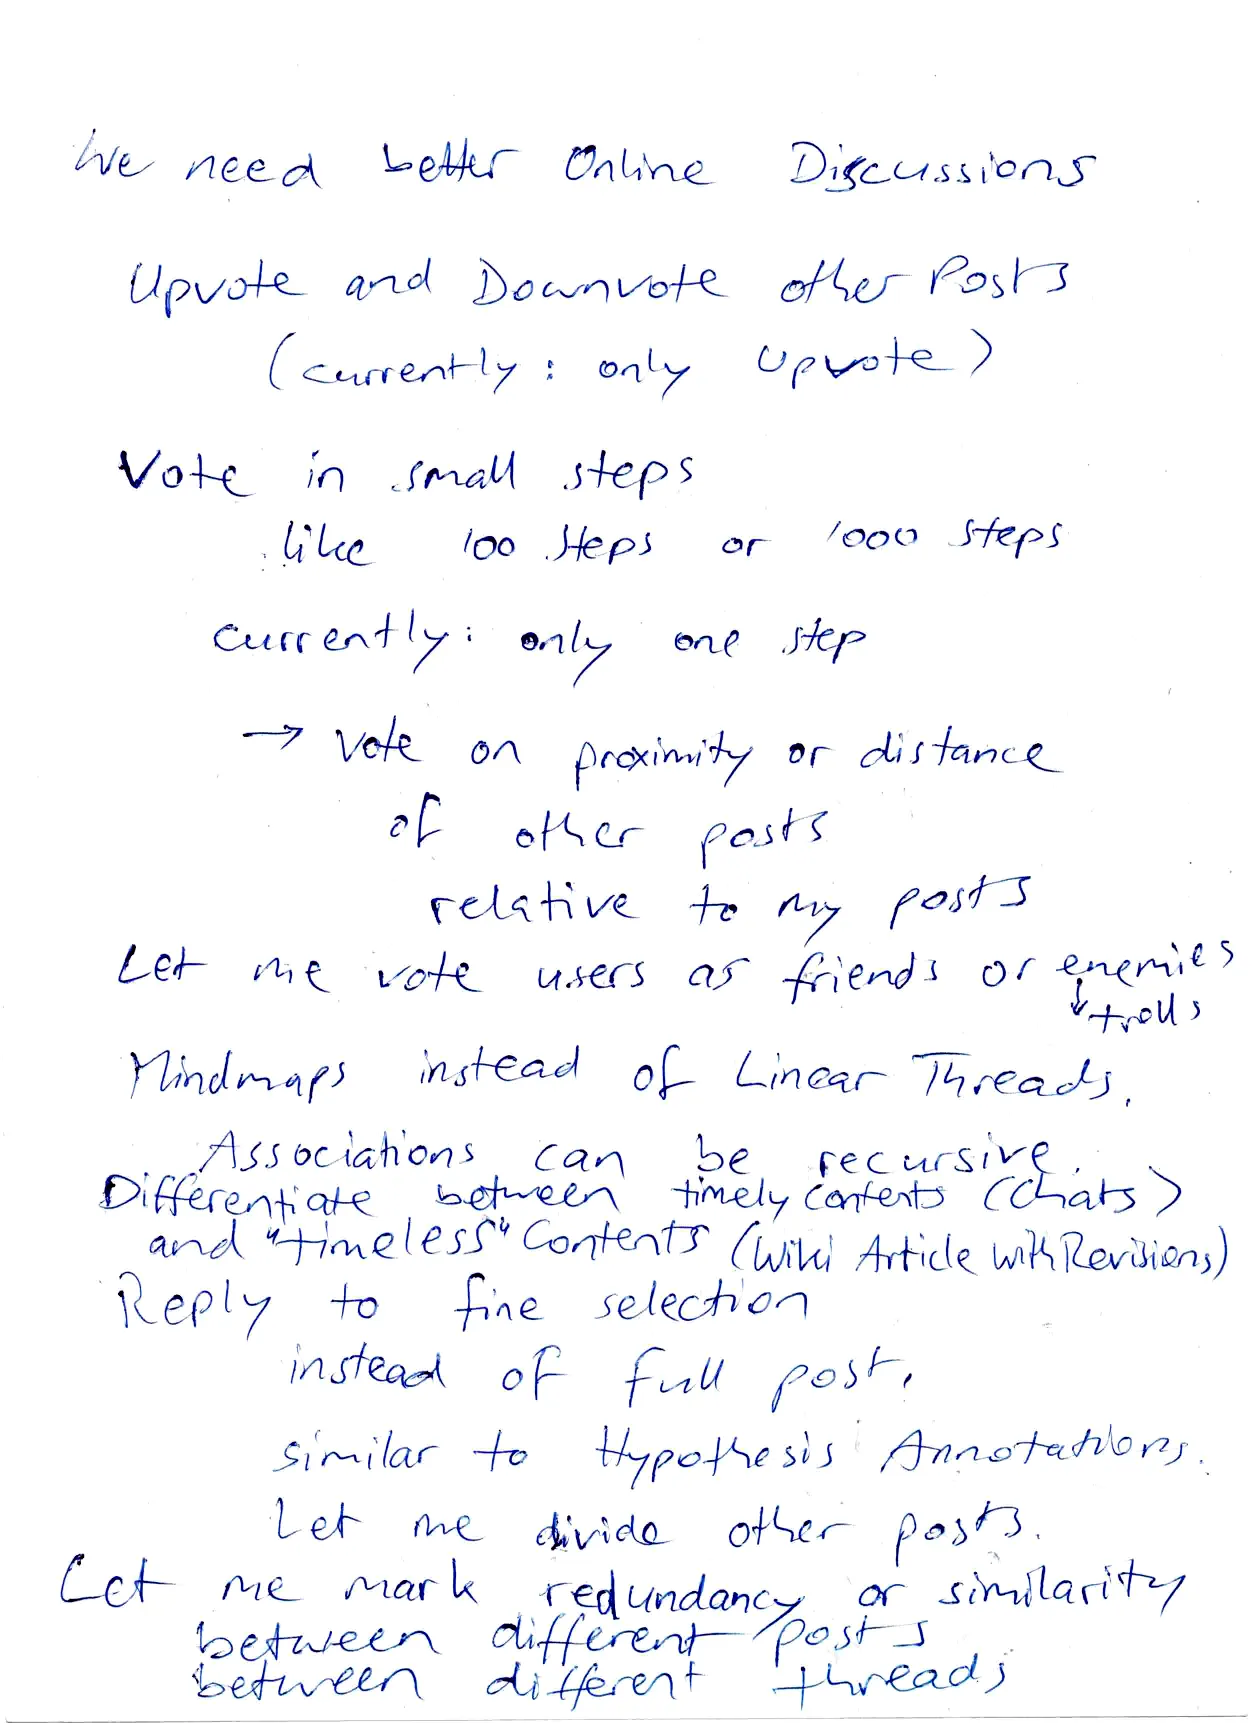 We need better Online Discussions
Upvote and Downvote other Posts
(currently: only Upvote)
Vote in small steps
like 100 steps or 1000 steps
currently: only one step
→ vote on proximity or distance
of other posts
relative to my posts
Let me vote users as friends or enemies
↓ trolls
Mindmaps instead of Linear Threads.
Associations can be recursive.
Differentiate between timely contents (Chats)
and "timeless" Contents (Wiki Article with Revisions)
Reply to fine selection
instead of full post.
similar to Hypothesis Annotations.
Let me divide other posts.
Let me mark redundancy or similarity
between different posts
between different threads